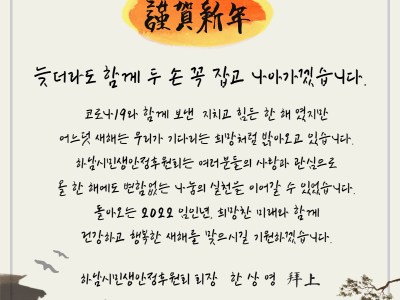 謹賀新年
늦더라도 함께 두 손 꼭 잡고 나아가겠습니다.
코로나19와 함께 보낸 지치고 힘든 한 해 였지만
어느덧 새해는 우리가 기다리는 희망처럼 밝아오고 있습니다.
하남시민생안정후원회는 여러분들의 사랑과 관심으로
올 한 해에도 변함없는 나눔의 실천을 이어갈 수 있었습니다.
돌아오는 2022 임인년, 희망찬 미래와 함께
건강하고 행복한 새해를 맞으시길 기원하겠습니다.
하남시민생안정후원회 회장 한상영 拜上